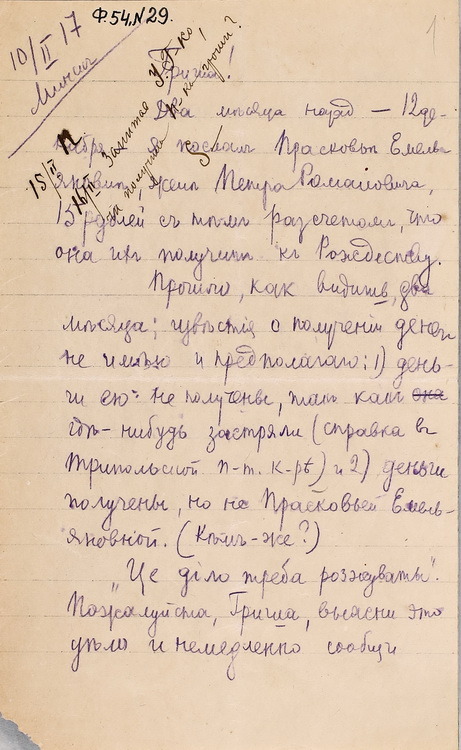 Ф.54, N29.
1
10/II 17
Минск
Гриша!
Два мѣсяца назад — 12 де-
кабря я послал Прасковьѣ Емель-
яновнѣ, женѣ Петра Романовича,
15 рублей съ тѣмъ разсчетом, что
она их получит къ Рождеству.
Прошло, как видишь, два
мѣсяца; извѣстія о полученіи денег
не имѣю и предполагаю: 1) день-
ги ею не получены, так как она
гдѣ-нибудь застряли (справка въ
Трипольской п-т. к-рѣ) и 2) деньги
получены, но не Прасковьей Емель-
яновной. (Кѣмъ-же?)
„Це діло треба розжувать".
Пожалуйста, Гриша, выясни это
дѣло и немедленно сообщи